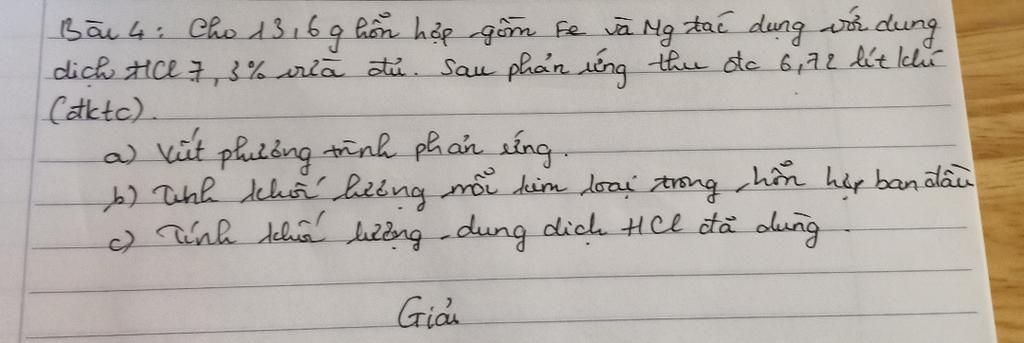 Bài 4: Cho 13,6g hỗn hợp gồm Fe và Mg tác dụng với dung
dịch HCl 7,3% vừa đủ. Sau phản ứng thu đc 6,72 lít khí
(đktc).
a) Viết phương trình phản ứng.
b) Tính khối lượng mỗi kim loại trong hỗn hợp ban đầu
c) Tính khối lượng dung dịch HCl đã dùng.
Giải